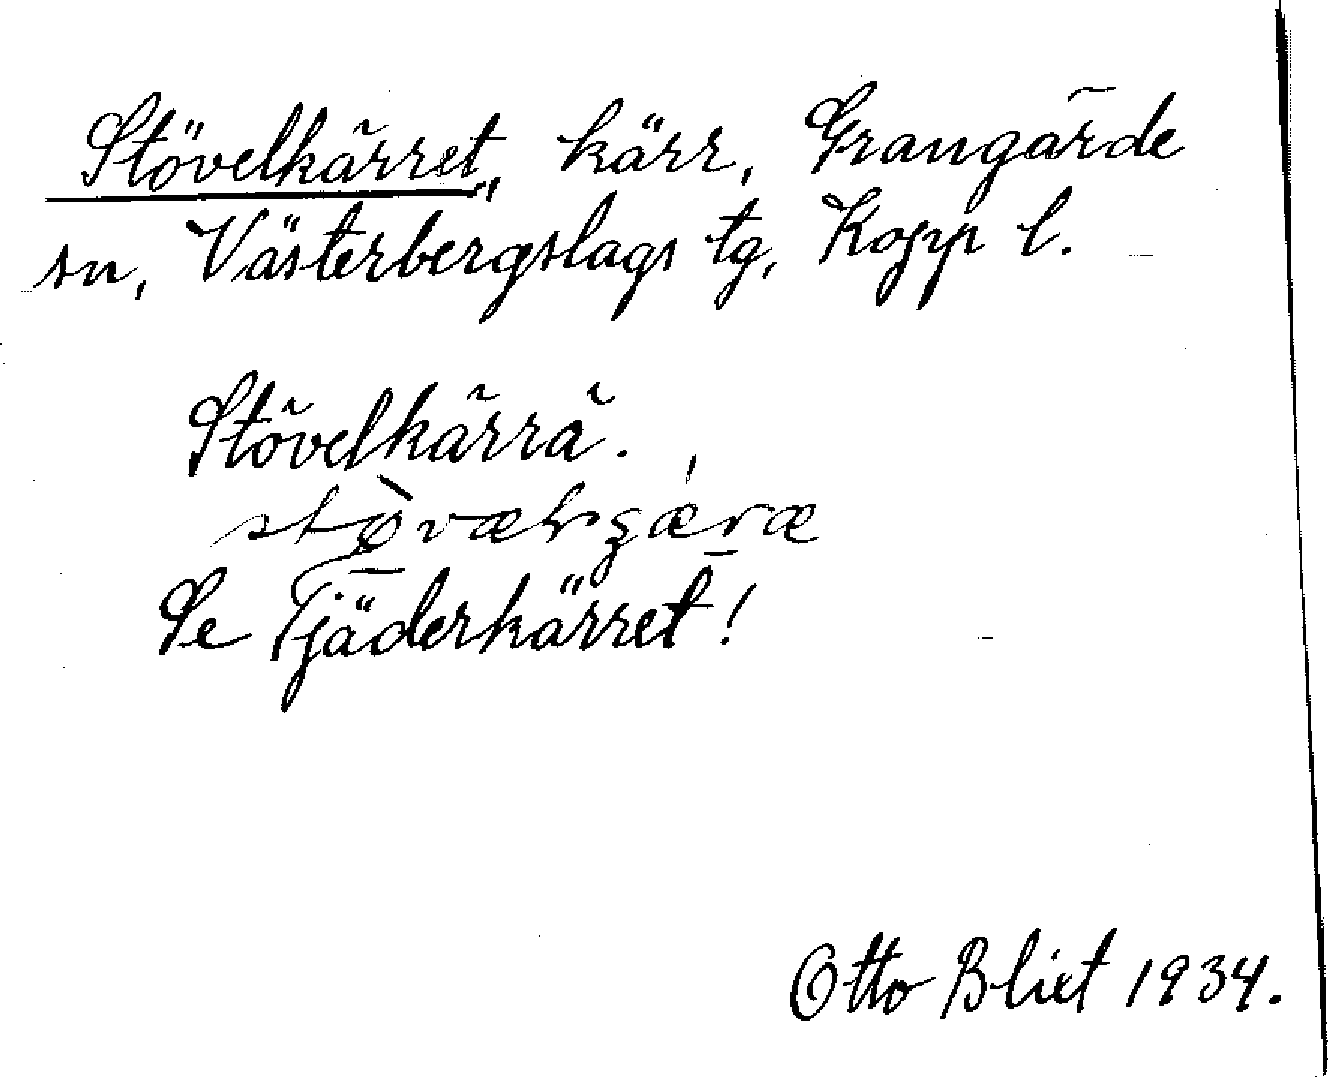 Stövelkärret, kärr, Grangärde
sn, Västerbergslags tg, Kopp l.
Stövelkärrä.
Se Tjäderkärret!
Otto Blixt 1934.